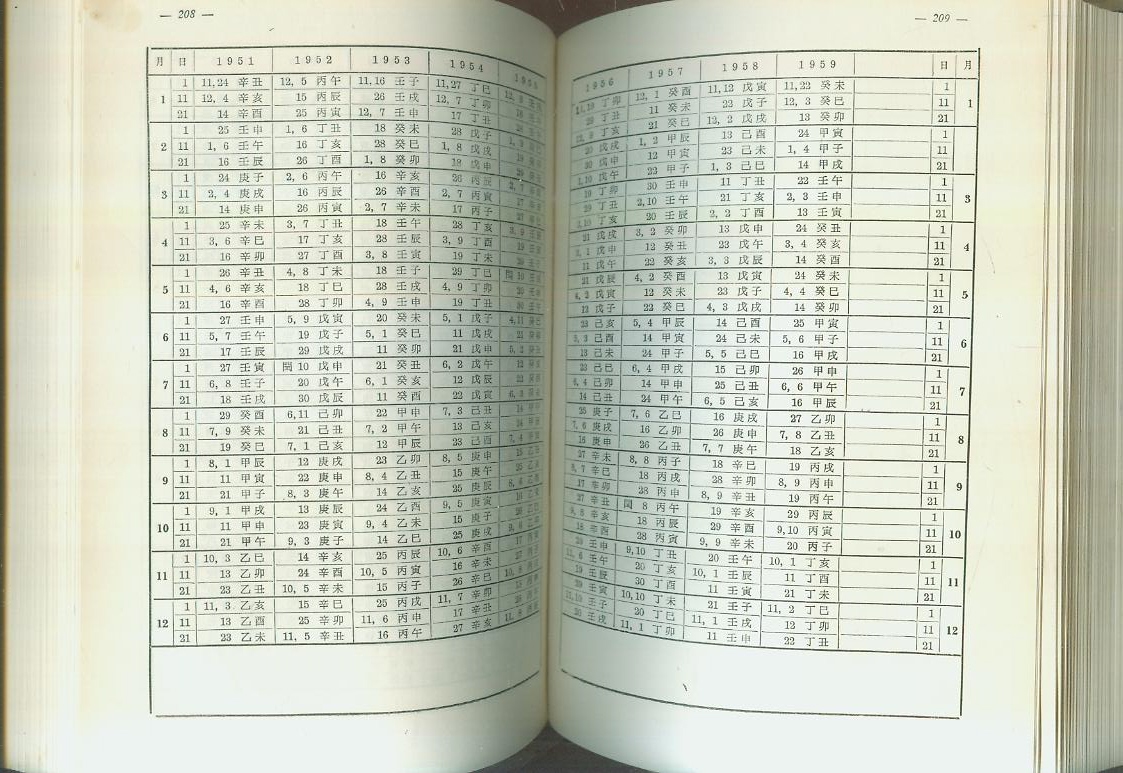 — 208 —
月 日 1951 1952 1953 1954
1 1 11,24 辛丑 12, 5 丙午 11,16 壬子 11,27 丁巳
11 12, 4 辛亥 15 丙辰 26 壬戌 12, 7 丁卯
21 14 辛酉 25 丙寅 12, 7 壬申 17 丁丑
2 1 25 壬申 1, 6 丁丑 18 癸未 28 戊子
11 1, 6 壬午 16 丁亥 28 癸巳 1, 8 戊戌
21 16 壬辰 26 丁酉 1, 8 癸卯 18 戊申
3 1 24 庚子 2, 6 丙午 16 辛亥 26 丙辰
11 2, 4 庚戌 16 丙辰 26 辛酉 2, 7 丙寅
21 14 庚申 26 丙寅 2, 7 辛未 17 丙子
4 1 25 辛未 3, 7 丁丑 18 壬午 28 丁亥
11 3, 6 辛巳 17 丁亥 28 壬辰 3, 9 丁酉
21 16 辛卯 27 丁酉 3, 8 壬寅 19 丁未
5 1 26 辛丑 4, 8 丁未 18 壬子 29 丁巳
11 4, 6 辛亥 18 丁巳 28 壬戌 4, 9 丁卯
21 16 辛酉 28 丁卯 4, 9 壬申 19 丁丑
6 1 27 壬申 5, 9 戊寅 20 癸未 5, 1 戊子
11 5, 7 壬午 19 戊子 5, 1 癸巳 11 戊戌
21 17 壬辰 29 戊戌 11 癸卯 21 戊申
7 1 27 壬寅 閏 10 戊申 21 癸丑 6, 2 戊午
11 6, 8 壬子 20 戊午 6, 1 癸亥 12 戊辰
21 18 壬戌 30 戊辰 11 癸酉 22 戊寅
8 1 29 癸酉 6,11 己卯 22 甲申 7, 3 己丑
11 7, 9 癸未 21 己丑 7, 2 甲午 13 己亥
21 19 癸巳 7, 1 己亥 12 甲辰 23 己酉
9 1 8, 1 甲辰 12 庚戌 23 乙卯 8, 5 庚申
11 11 甲寅 22 庚申 8, 4 乙丑 15 庚午
21 21 甲子 8, 3 庚午 14 乙亥 25 庚辰
10 1 9, 1 甲戌 13 庚辰 24 乙酉 9, 5 庚寅
11 11 甲申 23 庚寅 9, 4 乙未 15 庚子
21 21 甲午 9, 3 庚子 14 乙巳 25 庚戌
11 1 10, 3 乙巳 14 辛亥 25 丙辰 10, 6 辛酉
11 13 乙卯 24 辛酉 10, 5 丙寅 16 辛未
21 23 乙丑 10, 5 辛未 15 丙子 26 辛巳
12 1 11, 3 乙亥 15 辛巳 25 丙戌 11, 7 辛卯
11 13 乙酉 25 辛卯 11, 6 丙申 17 辛丑
21 23 乙未 11, 5 辛丑 16 丙午 27 辛亥
— 209 —
1956 1957 1958 1959 日 月
12, 1 癸酉 11,12 戊寅 11,22 癸未 1 1
11 癸未 22 戊子 12, 3 癸巳 11
21 癸巳 12, 2 戊戌 13 癸卯 21
1, 2 甲辰 13 己酉 24 甲寅 1 2
12 甲寅 23 己未 1, 4 甲子 11
22 甲子 1, 3 己巳 14 甲戌 21
30 壬申 11 丁丑 22 壬午 1 3
2,10 壬午 21 丁亥 2, 3 壬申 11
20 壬辰 2, 2 丁酉 13 壬寅 21
21 戊戌 3, 2 癸卯 13 戊申 24 癸丑 1 4
12 癸丑 23 戊午 3, 4 癸亥 11
11 戊午 22 癸亥 3, 3 戊辰 14 癸酉 21
21 戊辰 4, 2 癸酉 13 戊寅 24 癸未 1 5
4, 2 戊寅 12 癸未 23 戊子 4, 4 癸巳 11
12 戊子 22 癸巳 4, 3 戊戌 14 癸卯 21
23 己亥 5, 4 甲辰 14 己酉 25 甲寅 1 6
14 甲寅 24 己未 5, 6 甲子 11
13 己未 24 甲子 5, 5 己巳 16 甲戌 21
23 己巳 6, 4 甲戌 15 己卯 26 甲申 1 7
6, 4 己卯 14 甲申 25 己丑 6, 6 甲午 11
14 己丑 24 甲午 6, 5 己亥 16 甲辰 21
25 庚子 7, 6 乙巳 16 庚戌 27 乙卯 1 8
7, 6 庚戌 16 乙卯 26 庚申 7, 8 乙丑 11
16 庚申 26 乙丑 7, 7 庚午 18 乙亥 21
27 辛未 8, 8 丙子 18 辛巳 19 丙戌 1 9
8, 7 辛巳 18 丙戌 28 辛卯 8, 9 丙申 11
17 辛卯 28 丙申 8, 9 辛丑 19 丙午 21
27 辛丑 閏 8 丙午 19 辛亥 29 丙辰 1 10
18 丙辰 29 辛酉 9,10 丙寅 11
18 辛酉 28 丙寅 9, 9 辛未 20 丙子 21
29 壬申 9,10 丁丑 20 壬午 10, 1 丁亥 1 11
20 丁亥 10, 1 壬辰 11 丁酉 11
19 壬辰 30 丁酉 11 壬寅 21 丁未 21
10,10 丁未 21 壬子 11, 2 丁巳 1 12
20 丁巳 11, 1 壬戌 12 丁卯 11
11, 1 丁卯 11 壬申 22 丁丑 21